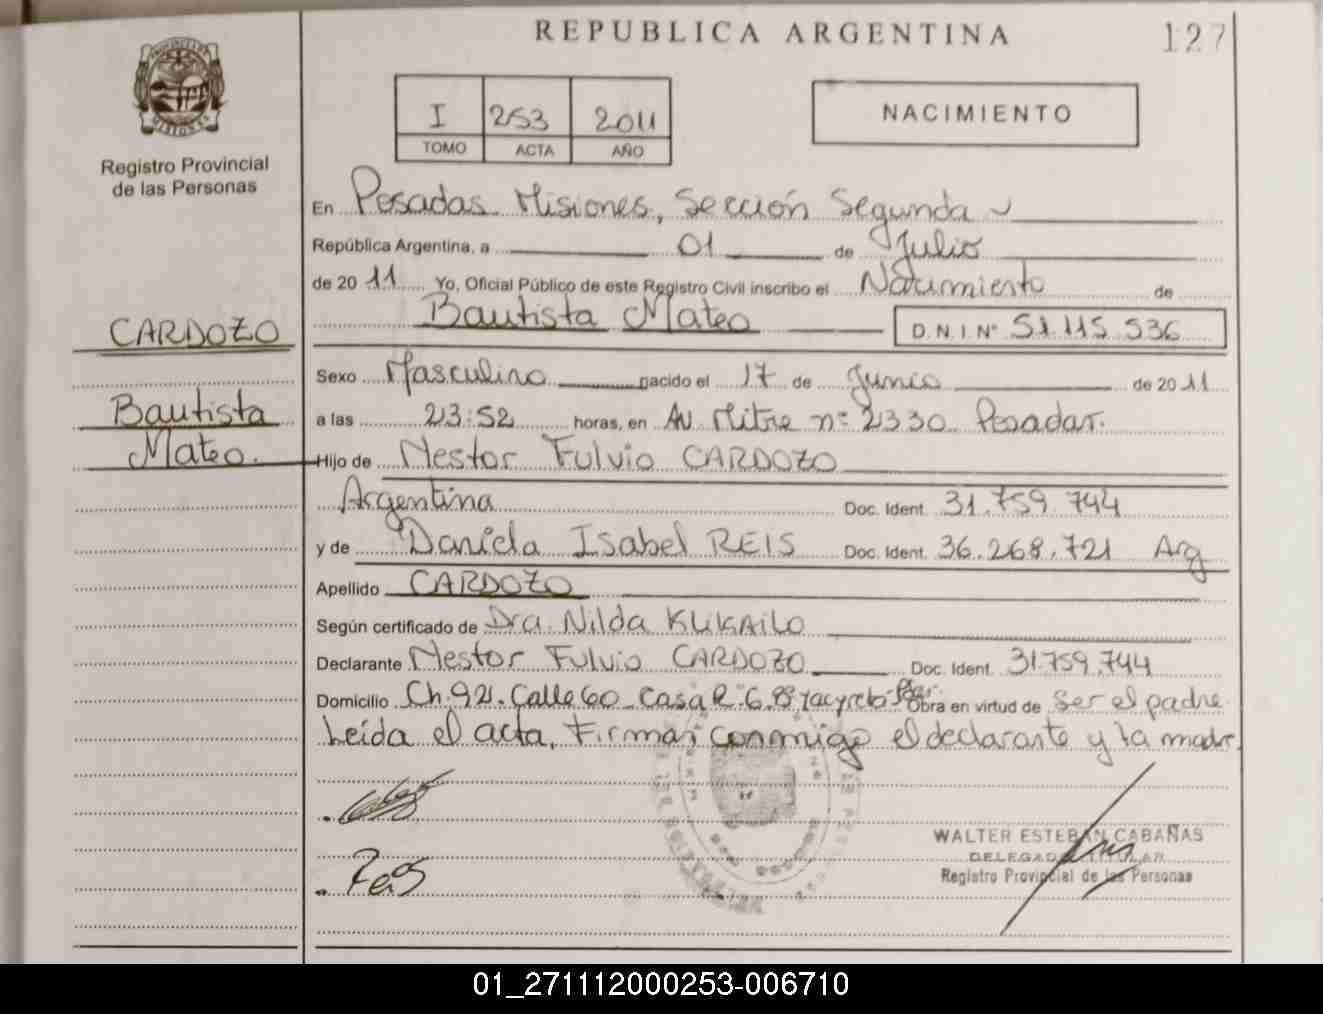 REPUBLICA ARGENTINA
127
PROVINCIA DE MISIONES
Registro Provincial
de las Personas
I 253 2011
TOMO ACTA AÑO
NACIMIENTO
En Posadas Misiones, Sección Segunda
República Argentina, a 01 de Julio
de 2011 Yo, Oficial Público de este Registro Civil inscribo el Nacimiento de
Bautista Mateo D.N.I Nº 51.115.536
CARDOZO
Bautista
Mateo.
Sexo Masculino nacido el 17 de Junio de 2011
a las 23:52 horas, en Av Mitre nº 2330 Posadas.
Hijo de Nestor Fulvio CARDOZO
Argentina Doc. Ident. 31.759.744
y de Daniela Isabel REIS Doc. Ident. 36.268.721 Arg
Apellido CARDOZO
Según certificado de Dra. Nilda KLIKAILO
Declarante Nestor Fulvio CARDOZO Doc. Ident. 31.759.744
Domicilio Ch. 92. Calle 60 Casa R. 6. Bº Yacyretá Obra en virtud de Ser el padre
Leída el acta, Firman conmigo el declarante y la madre
WALTER ESTEBAN CABAÑAS
DELEGADO TITULAR
Registro Provincial de las Personas
01_271112000253-006710